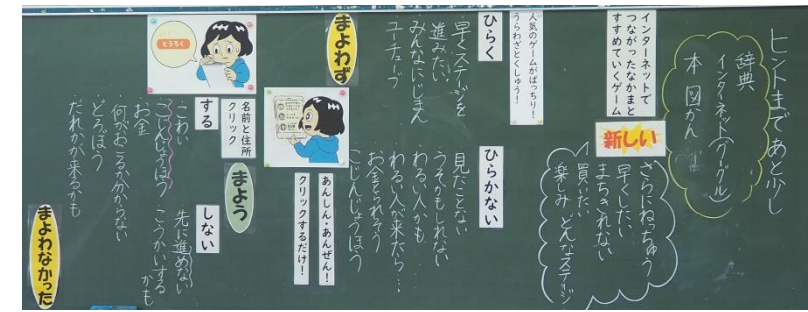 ヒントまであと少し
辞典
インターネット(グーグル)
本 図かん
インターネットで
つながったなかまと
すすめていくゲーム
新しい
さらにねっちゅう
早くしたい
まちきれない
買いたい
楽しみ どんなステージ
人気のゲームがばっちり!
うらわざとくしゅう!
ひらく
早くステージを
進みたい
みんなにじまん
ユーチューブ
ひらかない
見たことない
うそかもしれない
わるい人かも
わるい人が来たら…
お金とられそう
こじんじょうほう
まよわず
あんしん・あんぜん!
クリックするだけ!
とうろく
名前と住所
クリック
まよう
する
こわい
こじんじょうほう
お金
何がおこるか分からない
どろぼう
だれかが来るかも
しない
先に進めない
こうかいする
かも
まよわなかった